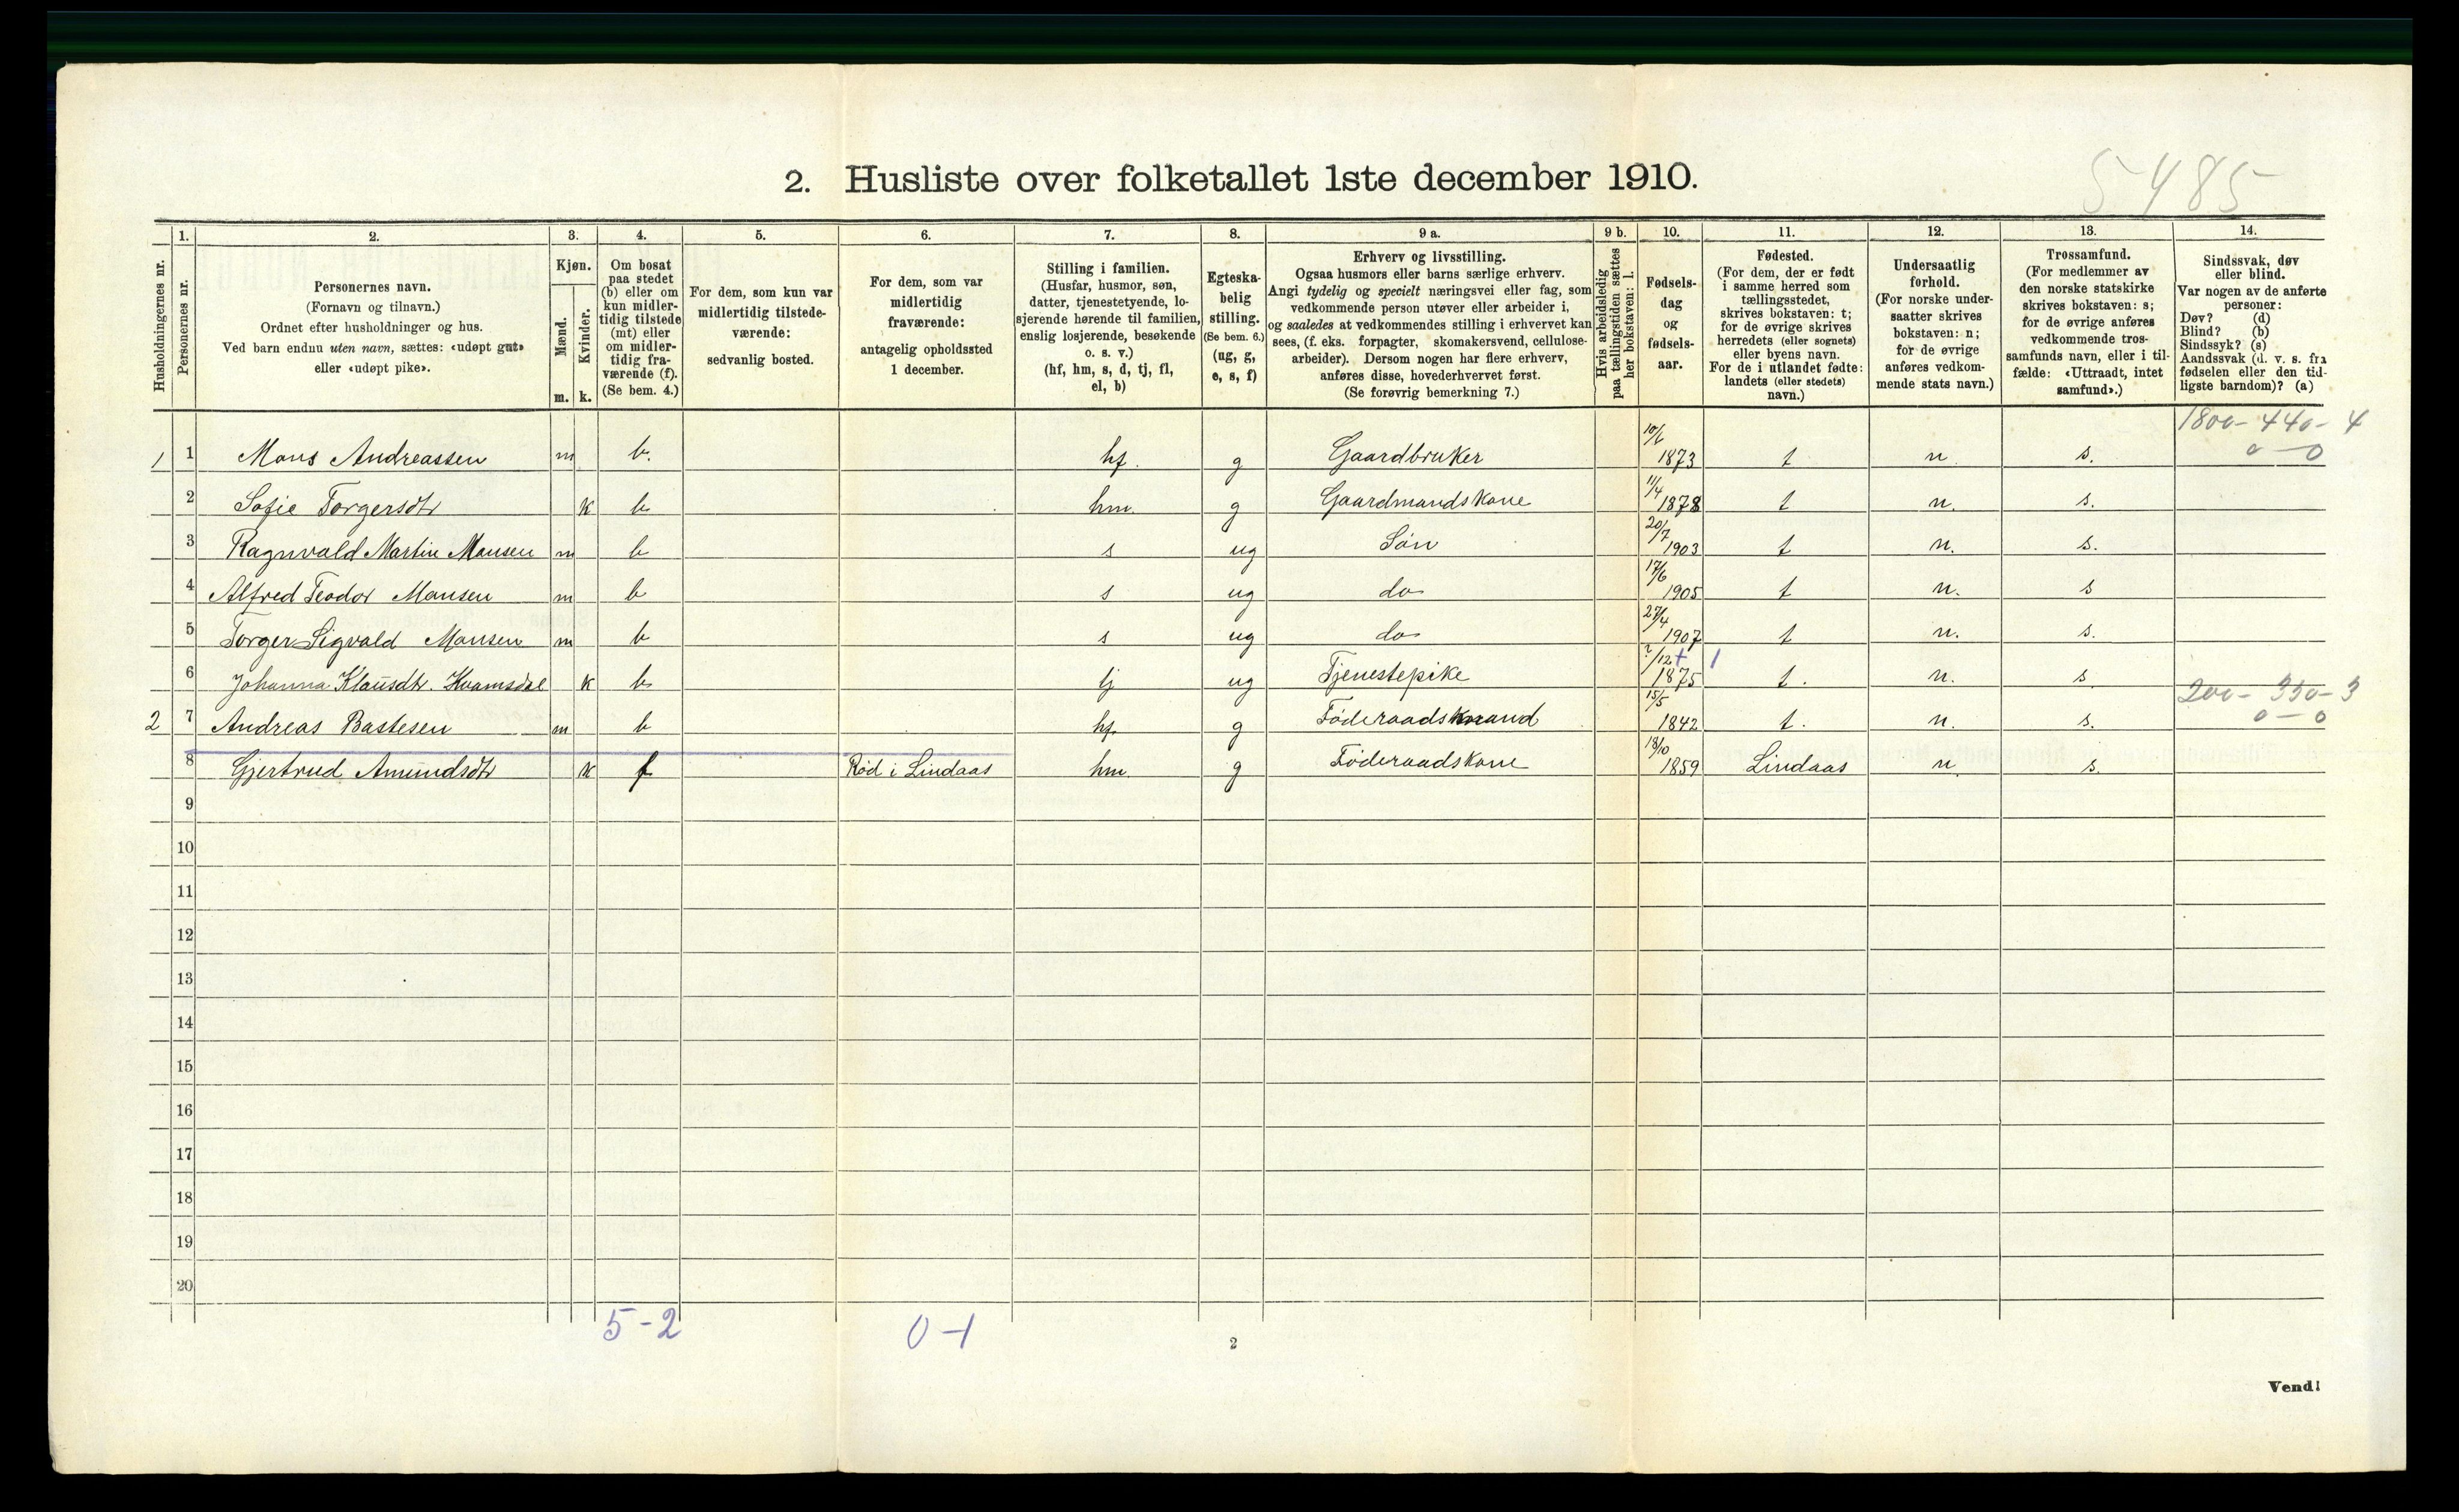 2. Husliste over folketallet 1ste december 1910.
5485
Husholdningernes nr.
1.
Personernes nr.
2.
Personernes navn.
(Fornavn og tilnavn.)
Ordnet efter husholdninger og hus.
Ved barn endnu uten navn, sættes: «udøpt gut»
eller «udøpt pike».
3.
Kjøn.
Mænd.
Kvinder.
m. k.
4.
Om bosat
paa stedet
(b) eller om
kun midler-
tidig tilstede
(mt) eller
om midler-
tidig fra-
værende (f).
(Se bem. 4.)
5.
For dem, som kun var
midlertidig tilstede-
værende:
sedvanlig bosted.
6.
For dem, som var
midlertidig
fraværende:
antagelig opholdssted
1 december.
7.
Stilling i familien.
(Husfar, husmor, søn,
datter, tjenestetyende, lo-
sjerende hørende til familien,
enslig losjerende, besøkende
o. s. v.)
(hf, hm, s, d, tj, fl,
el, b)
8.
Egteska-
belig
stilling.
(Se bem. 6.)
(ug, g,
e, s, f)
9 a.
Erhverv og livsstilling.
Ogsaa husmors eller barns særlige erhverv.
Angi tydelig og specielt næringsvei eller fag, som
vedkommende person utøver eller arbeider i,
og saaledes at vedkommendes stilling i erhvervet kan
sees, (f. eks. forpagter, skomakersvend, cellulose-
arbeider). Dersom nogen har flere erhverv,
anføres disse, hovederhvervet først.
(Se forøvrig bemerkning 7.)
9 b.
Hvis arbeidsledig
paa tællingstiden sættes
her bokstaven: l.
10.
Fødsels-
dag
og
fødsels-
aar.
11.
Fødested.
(For dem, der er født
i samme herred som
tællingsstedet,
skrives bokstaven: t;
for de øvrige skrives
herredets (eller sognets)
eller byens navn.
For de i utlandet fødte:
landets (eller stedets)
navn.)
12.
Undersaatlig
forhold.
(For norske under-
saatter skrives
bokstaven: n;
for de øvrige
anføres vedkom-
mende stats navn.)
13.
Trossamfund.
(For medlemmer av
den norske statskirke
skrives bokstaven: s;
for de øvrige anføres
vedkommende tros-
samfunds navn, eller i til-
fælde: «Uttraadt, intet
samfund».)
14.
Sindssvak, døv
eller blind.
Var nogen av de anførte
personer:
Døv? (d)
Blind? (b)
Sindssyk? (s)
Aandssvak (d. v. s. fra
fødselen eller den tid-
ligste barndom)? (a)
1800- 440- 4
0 - 0
1 1 Mons Andreassen m b. hf. g Gaardbruker 10/6 1873 t n. s.
2 Sofie Torgersdtr k b hm. g Gaardmandskone 11/4 1878 t n. s.
3 Ragnvald Martin Monsen m b s ug Søn 20/7 1903 t n. s.
4 Alfred Teodor Monsen m b s ug do 17/6 1905 t n. s
5 Torger Sigvald Monsen m b s ug do 27/4 1907 t n. s.
6 Johanna Klausdtr. Kvamsdal k b tj ug Tjenestepike ?/12 + 1 1875 t. n. s.
200- 350- 3
0 - 0
2 7 Andreas Bastesen m b hf. g Føderaadsmand 15/5 1842 t. n. s.
8 Gjertrud Amundsdtr k f Rød i Lindaas hm. g Føderaadskone 18/10 1859 Lindaas n. s.
9
10
11
12
13
14
15
16
17
18
19
20
5-2
0-1
2
Vend!